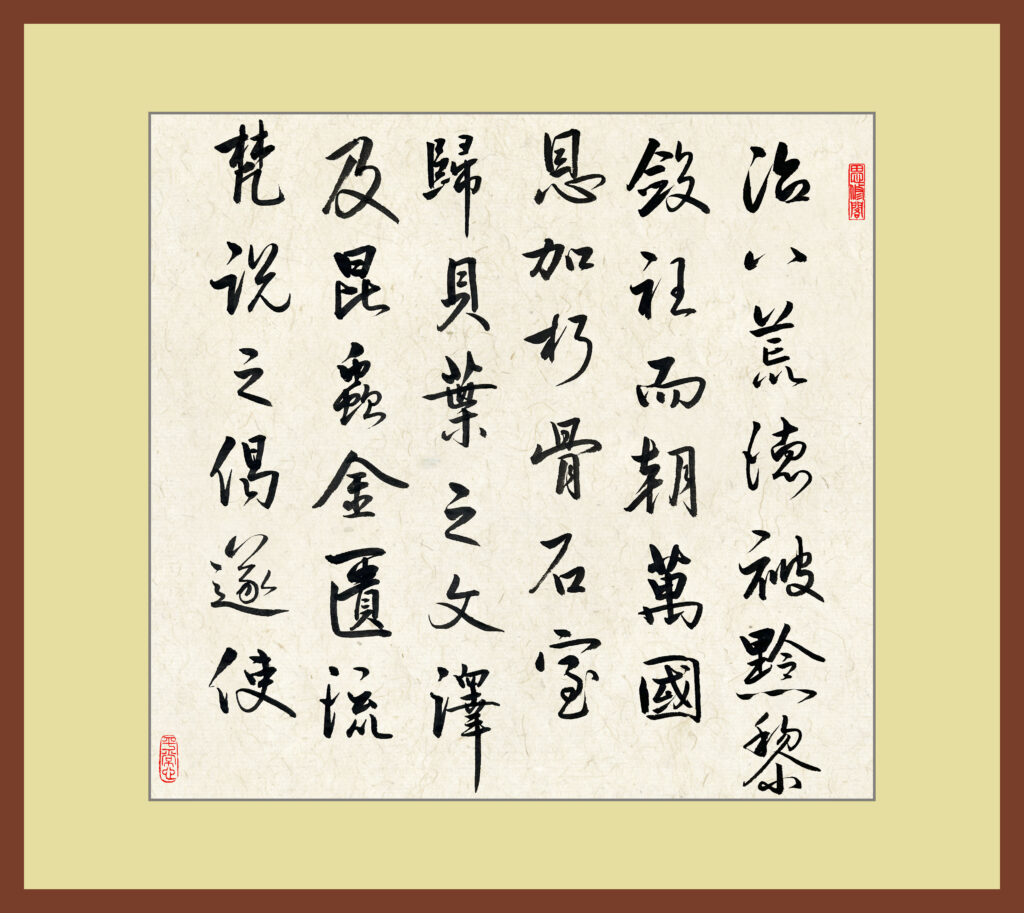 思修閣
治八荒德被黔黎
斂衽而朝萬國
恩加朽骨石室
歸貝葉之文澤
及昆蟲金匱流
梵說之偈遂使
平常心